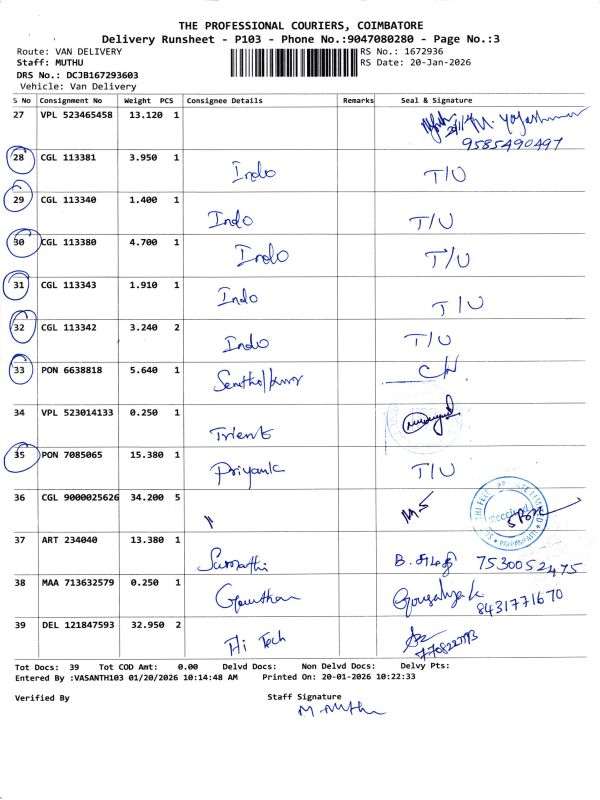 THE PROFESSIONAL COURIERS, COIMBATORE
Delivery Runsheet - P103 - Phone No.:9047080280 - Page No.:3
Route: VAN DELIVERY
RS No.: 1672936
Staff: MUTHU
RS Date: 20-Jan-2026
DRS No.: DCJB167293603
Vehicle: Van Delivery
S No Consignment No Weight PCS Consignee Details Remarks Seal & Signature
27 VPL 523465458 13.120 1
9585490497
28 CGL 113381 3.950 1 Indo T/U
29 CGL 113340 1.400 1 Indo T/U
30 CGL 113380 4.700 1 Indo T/U
31 CGL 113343 1.910 1 Indo T/U
32 CGL 113342 3.240 2 Indo T/U
33 PON 6638818 5.640 1
34 VPL 523014133 0.250 1 Trient
35 PON 7085065 15.380 1 Priyank T/U
36 CGL 9000025626 34.200 5 Received
37 ART 234040 13.380 1 Sumathi B. 7530052475
38 MAA 713632579 0.250 1 Gowtham
8431771670
39 DEL 121847593 32.950 2 Hi Tech
Tot Docs: 39 Tot COD Amt: 0.00 Delvd Docs: Non Delvd Docs: Delvy Pts:
Entered By :VASANTH103 01/20/2026 10:14:48 AM Printed On: 20-01-2026 10:22:33
Verified By Staff Signature
M. Muthu